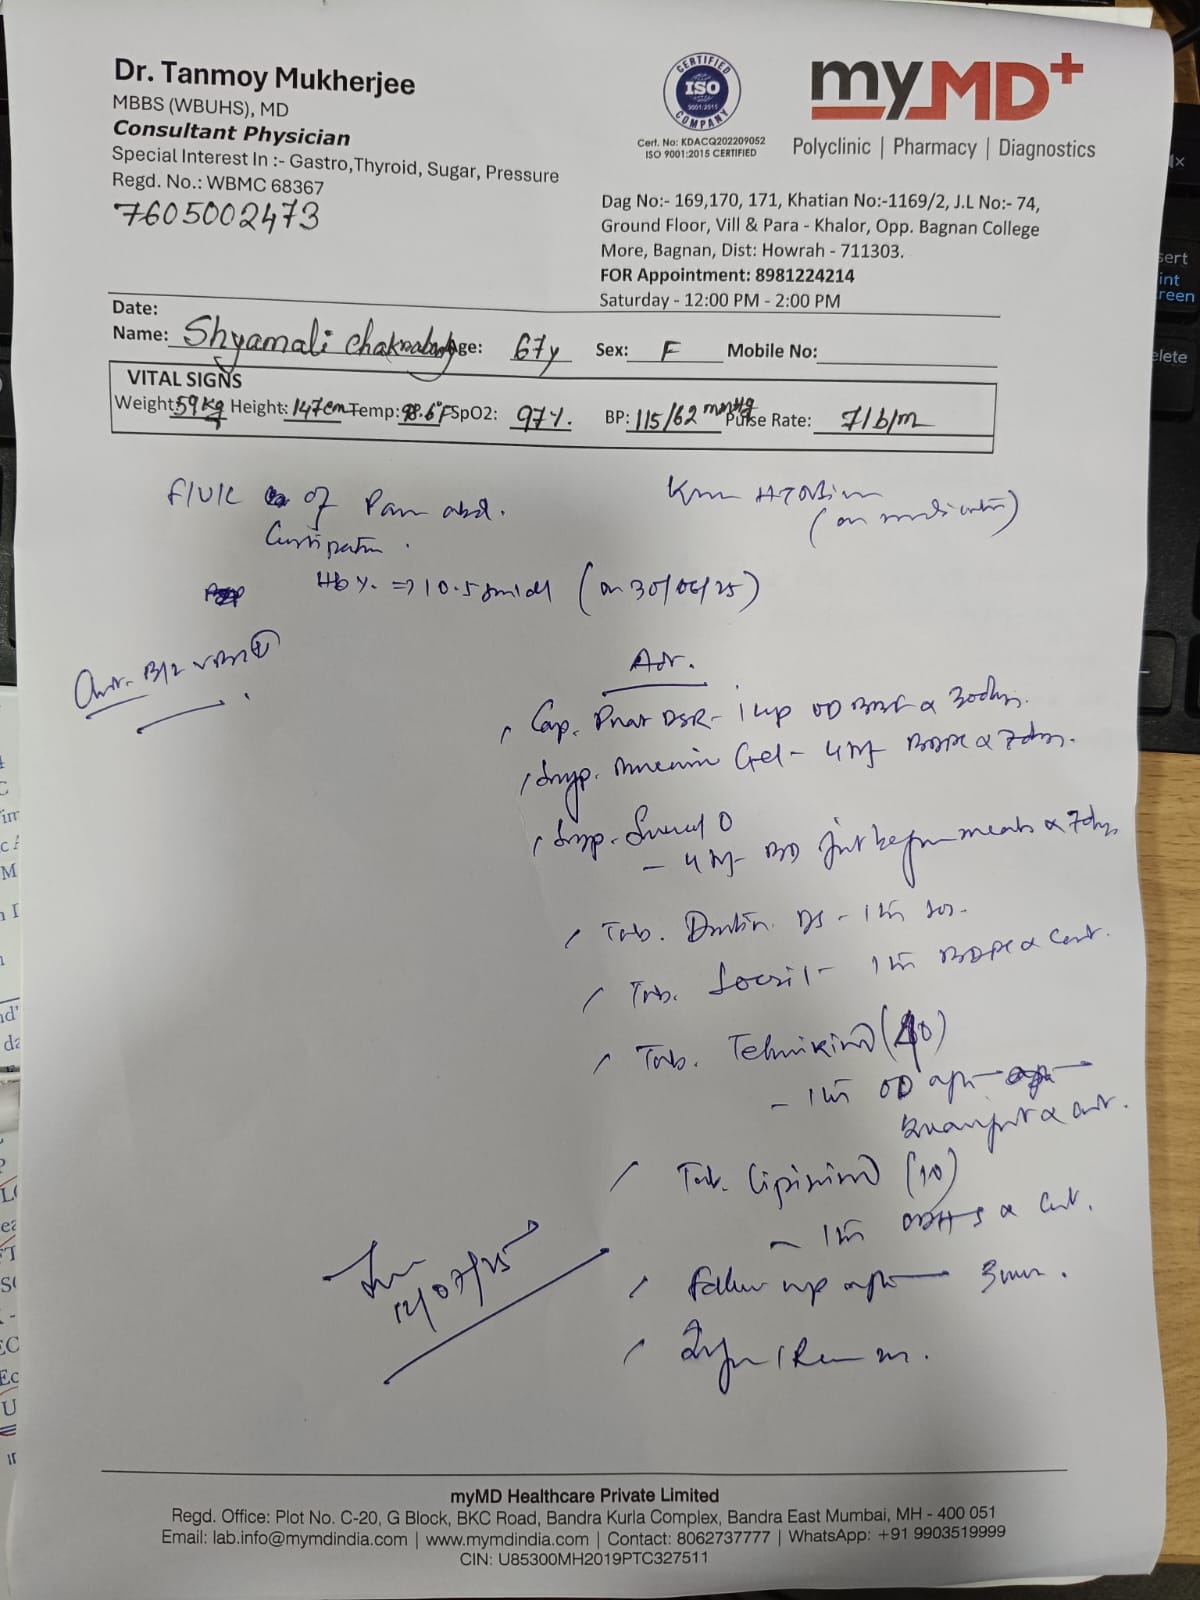 Dr. Tanmoy Mukherjee
MBBS (WBUHS), MD
Consultant Physician
Special Interest In :- Gastro,Thyroid, Sugar, Pressure
Regd. No.: WBMC 68367
7605002473
CERTIFIED
ISO
9001:2015
COMPANY
Cert. No: KDACQ202209052
ISO 9001:2015 CERTIFIED
myMD+
Polyclinic | Pharmacy | Diagnostics
Dag No:- 169,170, 171, Khatian No:-1169/2, J.L No:- 74,
Ground Floor, Vill & Para - Khalor, Opp. Bagnan College
More, Bagnan, Dist: Howrah - 711303.
FOR Appointment: 8981224214
Saturday - 12:00 PM - 2:00 PM
Date:
Name: Shyamali Chakraborty Age: 67y Sex: F Mobile No:
VITAL SIGNS
Weight: 59kg Height: 147cm Temp: 98.6°F SpO2: 97%. BP: 115/62 mmHg Pulse Rate: 71b/m
F/U/C of Pain abd.
Constipation.
(on medication)
Hb%. => 10.5 gm/dl (on 30/06/25)
Adv.
Cap. DSR - 1 cap OD BBF x 30days.
Syp. Gel - 4 tsf BDPC x 7days.
Syp. O
- 4 tsf BD just before meals x 7days
Tab. DS - 1 tab SOS.
Tab. - 1 tab BDPC x cont.
Tab. Telmikind (40)
- 1 tab OD after
breakfast x cont.
Tab. Lipikind (10)
- 1 tab ODHS x cont.
Follow up after
12/07/25
myMD Healthcare Private Limited
Regd. Office: Plot No. C-20, G Block, BKC Road, Bandra Kurla Complex, Bandra East Mumbai, MH - 400 051
Email: lab.info@mymdindia.com | www.mymdindia.com | Contact: 8062737777 | WhatsApp: +91 9903519999
CIN: U85300MH2019PTC327511